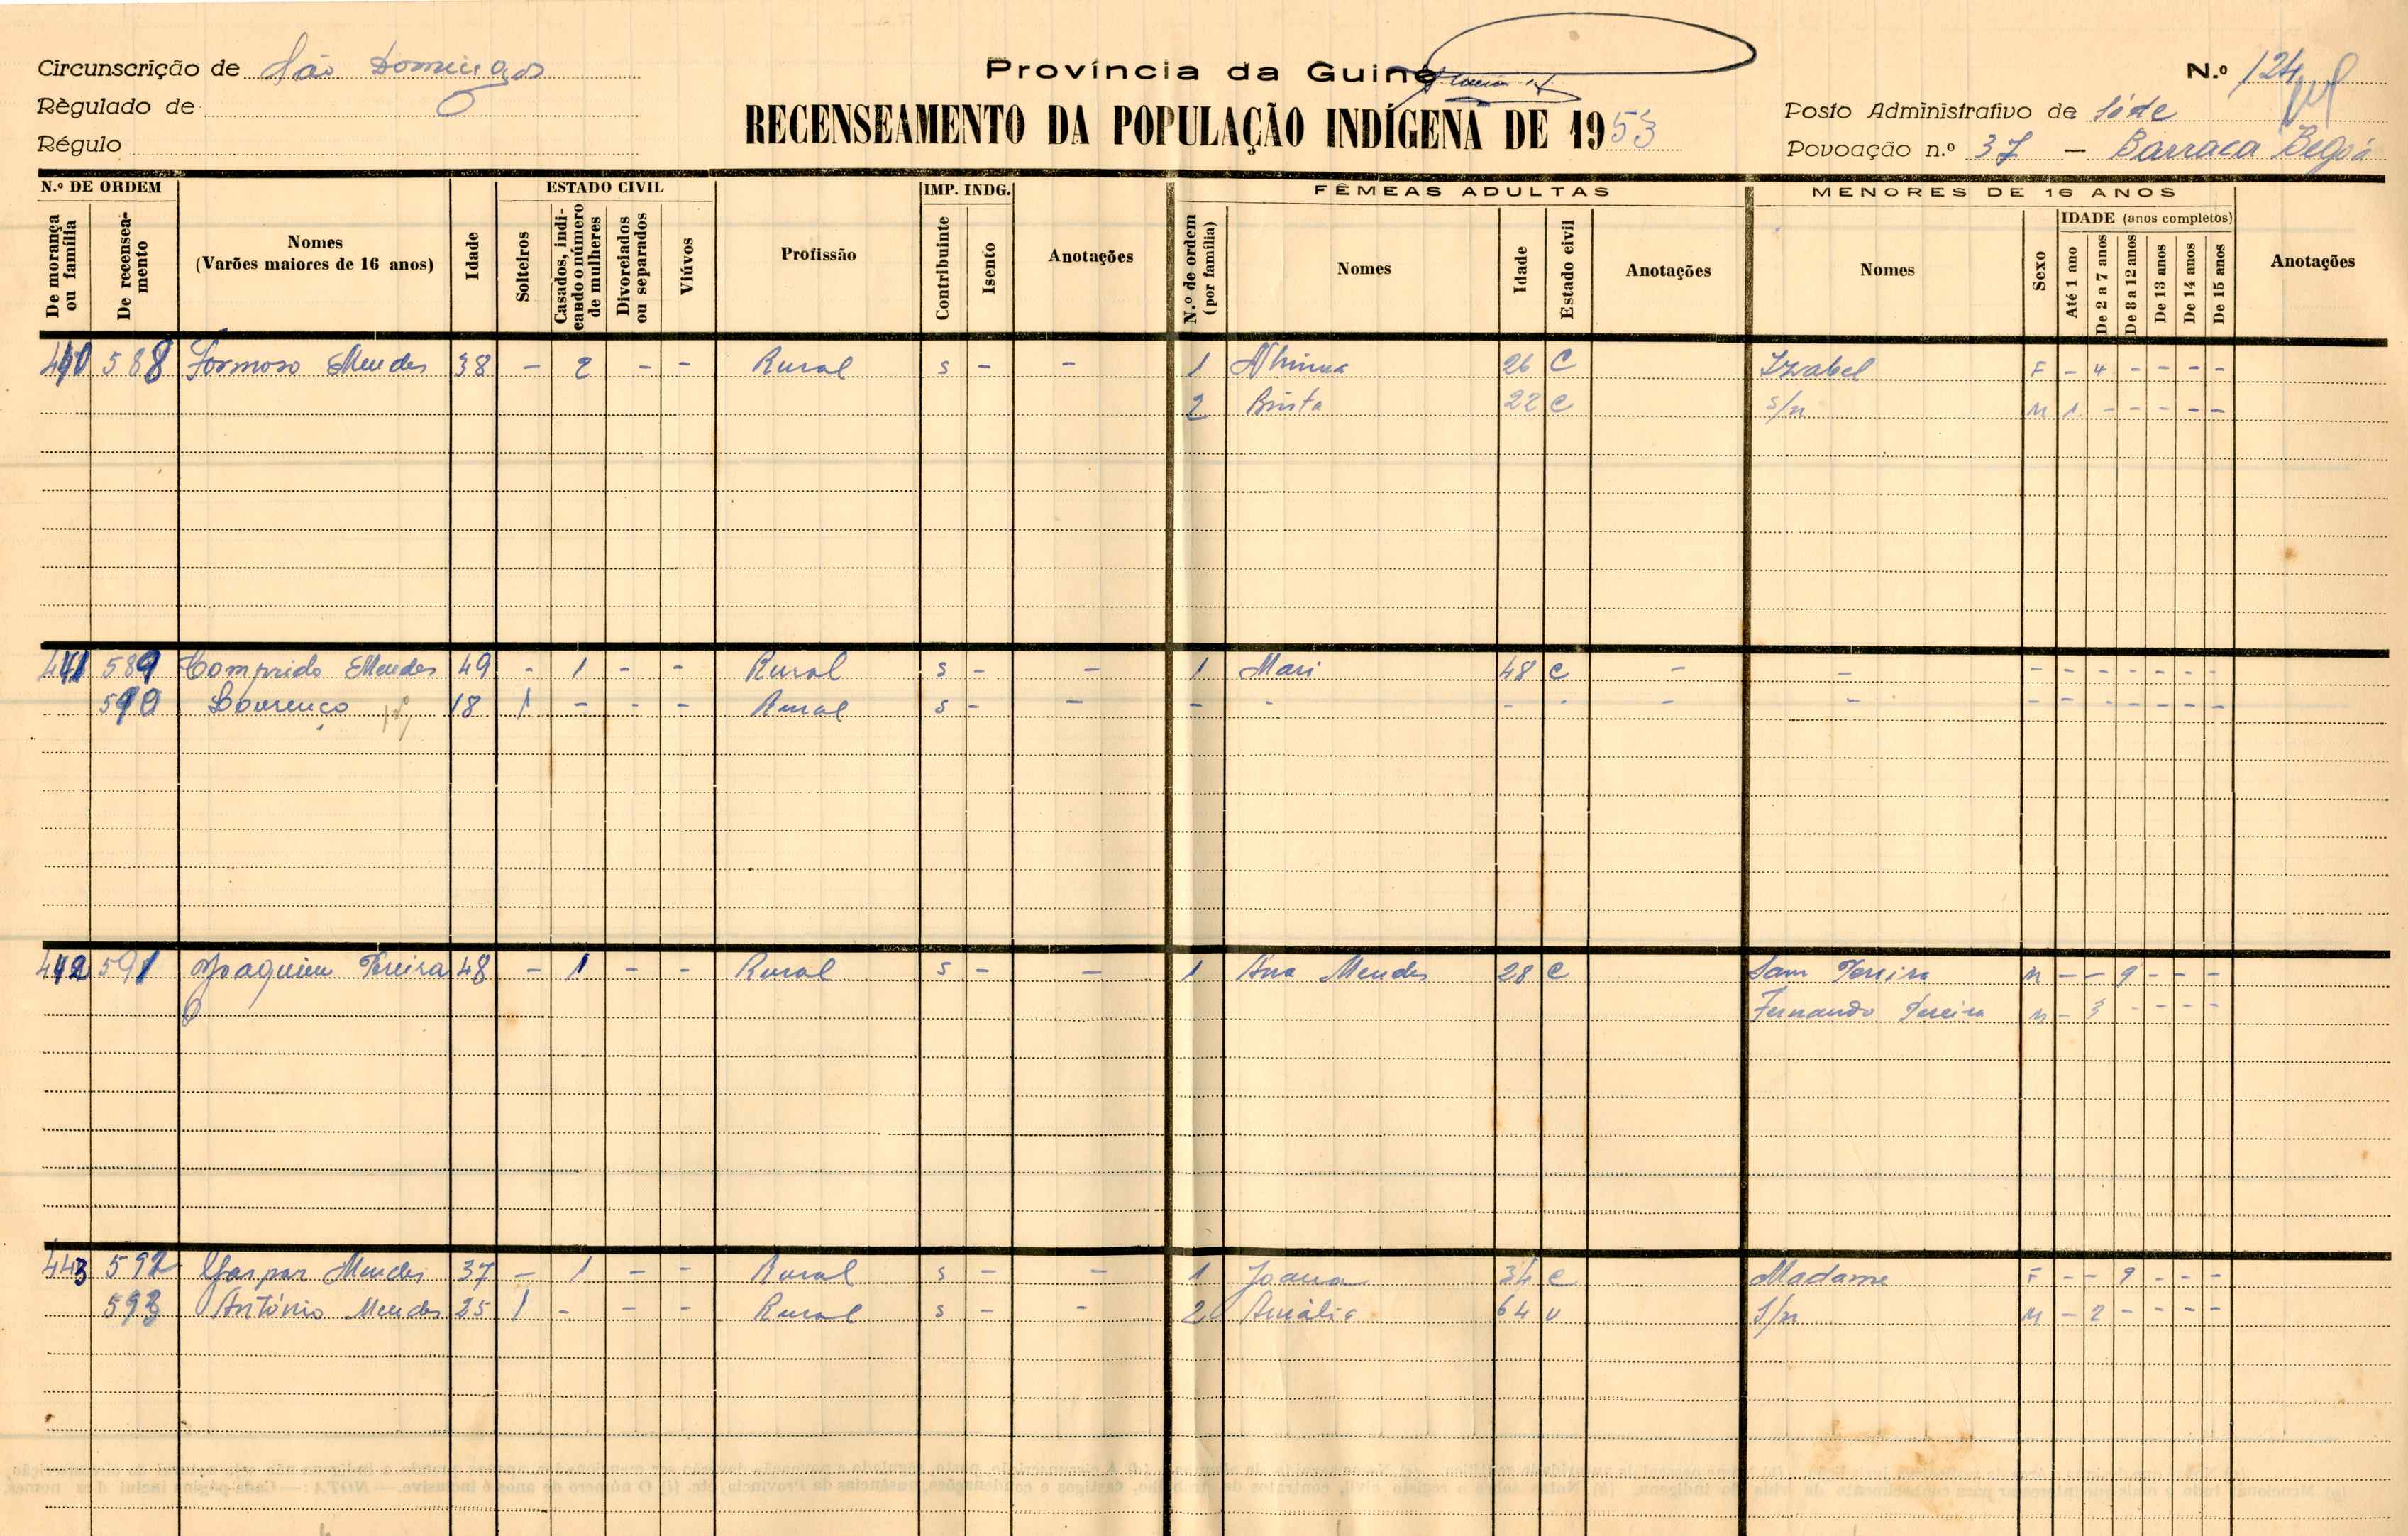 Circunscrição de São Domingos
Règulado de
Régulo
Província da Guiné
RECENSEAMENTO DA POPULAÇÃO INDÍGENA DE 1953
N.º 124
Posto Administrativo de Séde
Povoação n.º 37 — Barraca
N.º DE ORDEM
De morança ou família
De recenseamento
Nomes
(Varões maiores de 16 anos)
Idade
ESTADO CIVIL
Solteiros
Casados, indicando o número de mulheres
Divorciados ou separados
Viúvos
Profissão
IMP. INDG.
Contribuinte
Isento
Anotações
FÊMEAS ADULTAS
N.º de ordem (por família)
Nomes
Idade
Estado civil
Anotações
MENORES DE 16 ANOS
Nomes
Sexo
IDADE (anos completos)
Até 1 ano
De 2 a 7 anos
De 8 a 12 anos
De 13 anos
De 14 anos
De 15 anos
Anotações
440 588 Formoso Mendes 38 - 2 - - Rural s - - 1 26 C Izabel F - 4 - - - -
2 22 C s/n M 1 - - - - -
441 589 Comprido Mendes 49 - 1 - - Rural s - - 1 Mari 48 C - - - - - - - - -
590 Lourenço 18 1 - - - Rural s - - - - - - - - - - - - - - -
442 591 Joaquim Pereira 48 - 1 - - Rural s - - 1 Ana Mendes 28 C Sam Pereira M - - 9 - - -
Fernando Pereira M - 3 - - - -
443 592 Gaspar Mendes 37 - 1 - - Rural s - - 1 Joana 34 C Madame F - - 9 - - -
593 António Mendes 25 1 - - - Rural s - - 2 Amália 64 v S/n M - 2 - - - -